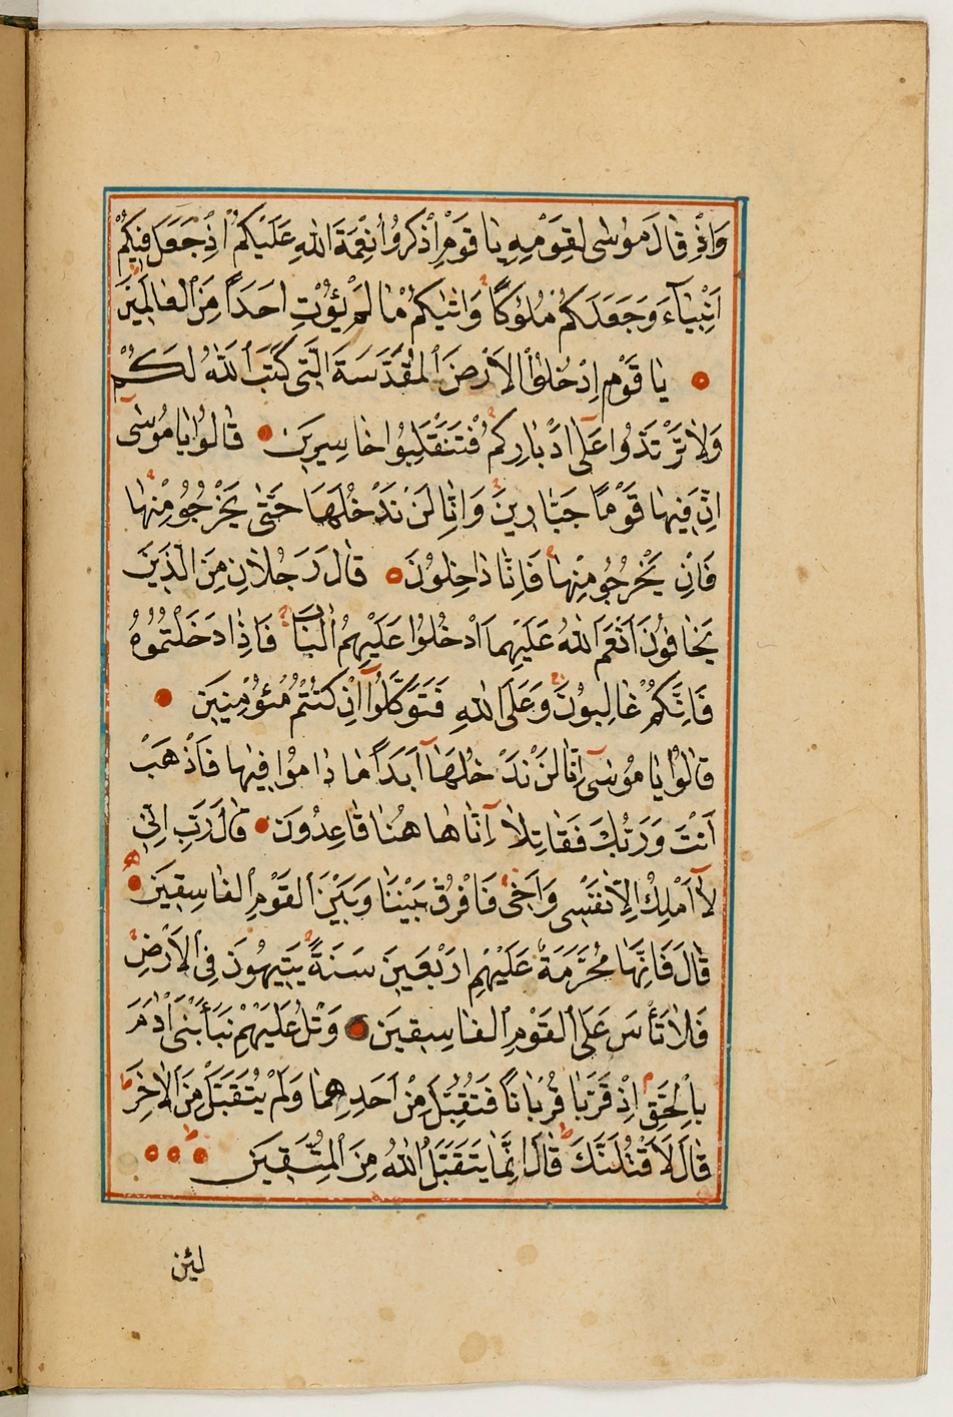 وَاِذْ قَالَ مُوسٰى لِقَوْمِهِ يَا قَوْمِ اذْكُرُوا نِعْمَةَ اللهِ عَلَيْكُمْ اِذْ جَعَلَ فِيكُمْ
اَنْبِيَآءَ وَجَعَلَكُمْ مُلُوكًا وَاٰتٰيكُمْ مَا لَمْ يُؤْتِ اَحَدًا مِنَ الْعَالَمِينَ
يَا قَوْمِ ادْخُلُوا الْاَرْضَ الْمُقَدَّسَةَ الَّتِى كَتَبَ اللهُ لَكُمْ
وَلَا تَرْتَدُّوا عَلٰٓى اَدْبَارِكُمْ فَتَنْقَلِبُوا خَاسِرِينَ قَالُوا يَا مُوسٰٓى
اِنَّ فِيهَا قَوْمًا جَبَّارِينَ وَاِنَّا لَنْ نَدْخُلَهَا حَتّٰى يَخْرُجُو مِنْهَا
فَاِنْ يَخْرُجُو مِنْهَا فَاِنَّا دَاخِلُونَ قَالَ رَجُلَانِ مِنَ الَّذِينَ
يَخَافُونَ اَنْعَمَ اللهُ عَلَيْهِمَا ادْخُلُوا عَلَيْهِمُ الْبَابَ فَاِذَا دَخَلْتُمُوهُ
فَاِنَّكُمْ غَالِبُونَ وَعَلَى اللهِ فَتَوَكَّلُوٓا اِنْ كُنْتُمْ مُؤْمِنِينَ
قَالُوا يَا مُوسٰٓى اِنَّا لَنْ نَدْخُلَهَآ اَبَدًا مَا دَامُوا فِيهَا فَاذْهَبْ
اَنْتَ وَرَبُّكَ فَقَاتِلَآ اِنَّا هَا هُنَا قَاعِدُونَ قَالَ رَبِّ اِنِّى
لَآ اَمْلِكُ اِلَّا نَفْسِى وَاَخِى فَافْرُقْ بَيْنَنَا وَبَيْنَ الْقَوْمِ الْفَاسِقِينَ
قَالَ فَاِنَّهَا مُحَرَّمَةٌ عَلَيْهِمْ اَرْبَعِينَ سَنَةً يَتِيهُونَ فِى الْاَرْضِ
فَلَا تَأْسَ عَلَى الْقَوْمِ الْفَاسِقِينَ وَتْلُ عَلَيْهِمْ نَبَأَ ابْنَىْ اٰدَمَ
بِالْحَقِّ اِذْ قَرَّبَا قُرْبَانًا فَتُقُبِّلَ مِنْ اَحَدِهِمَا وَلَمْ يُتَقَبَّلْ مِنَ الْاٰخَرِ
قَالَ لَاَقْتُلَنَّكَ قَالَ اِنَّمَا يَتَقَبَّلُ اللهُ مِنَ الْمُتَّقِينَ
لئن